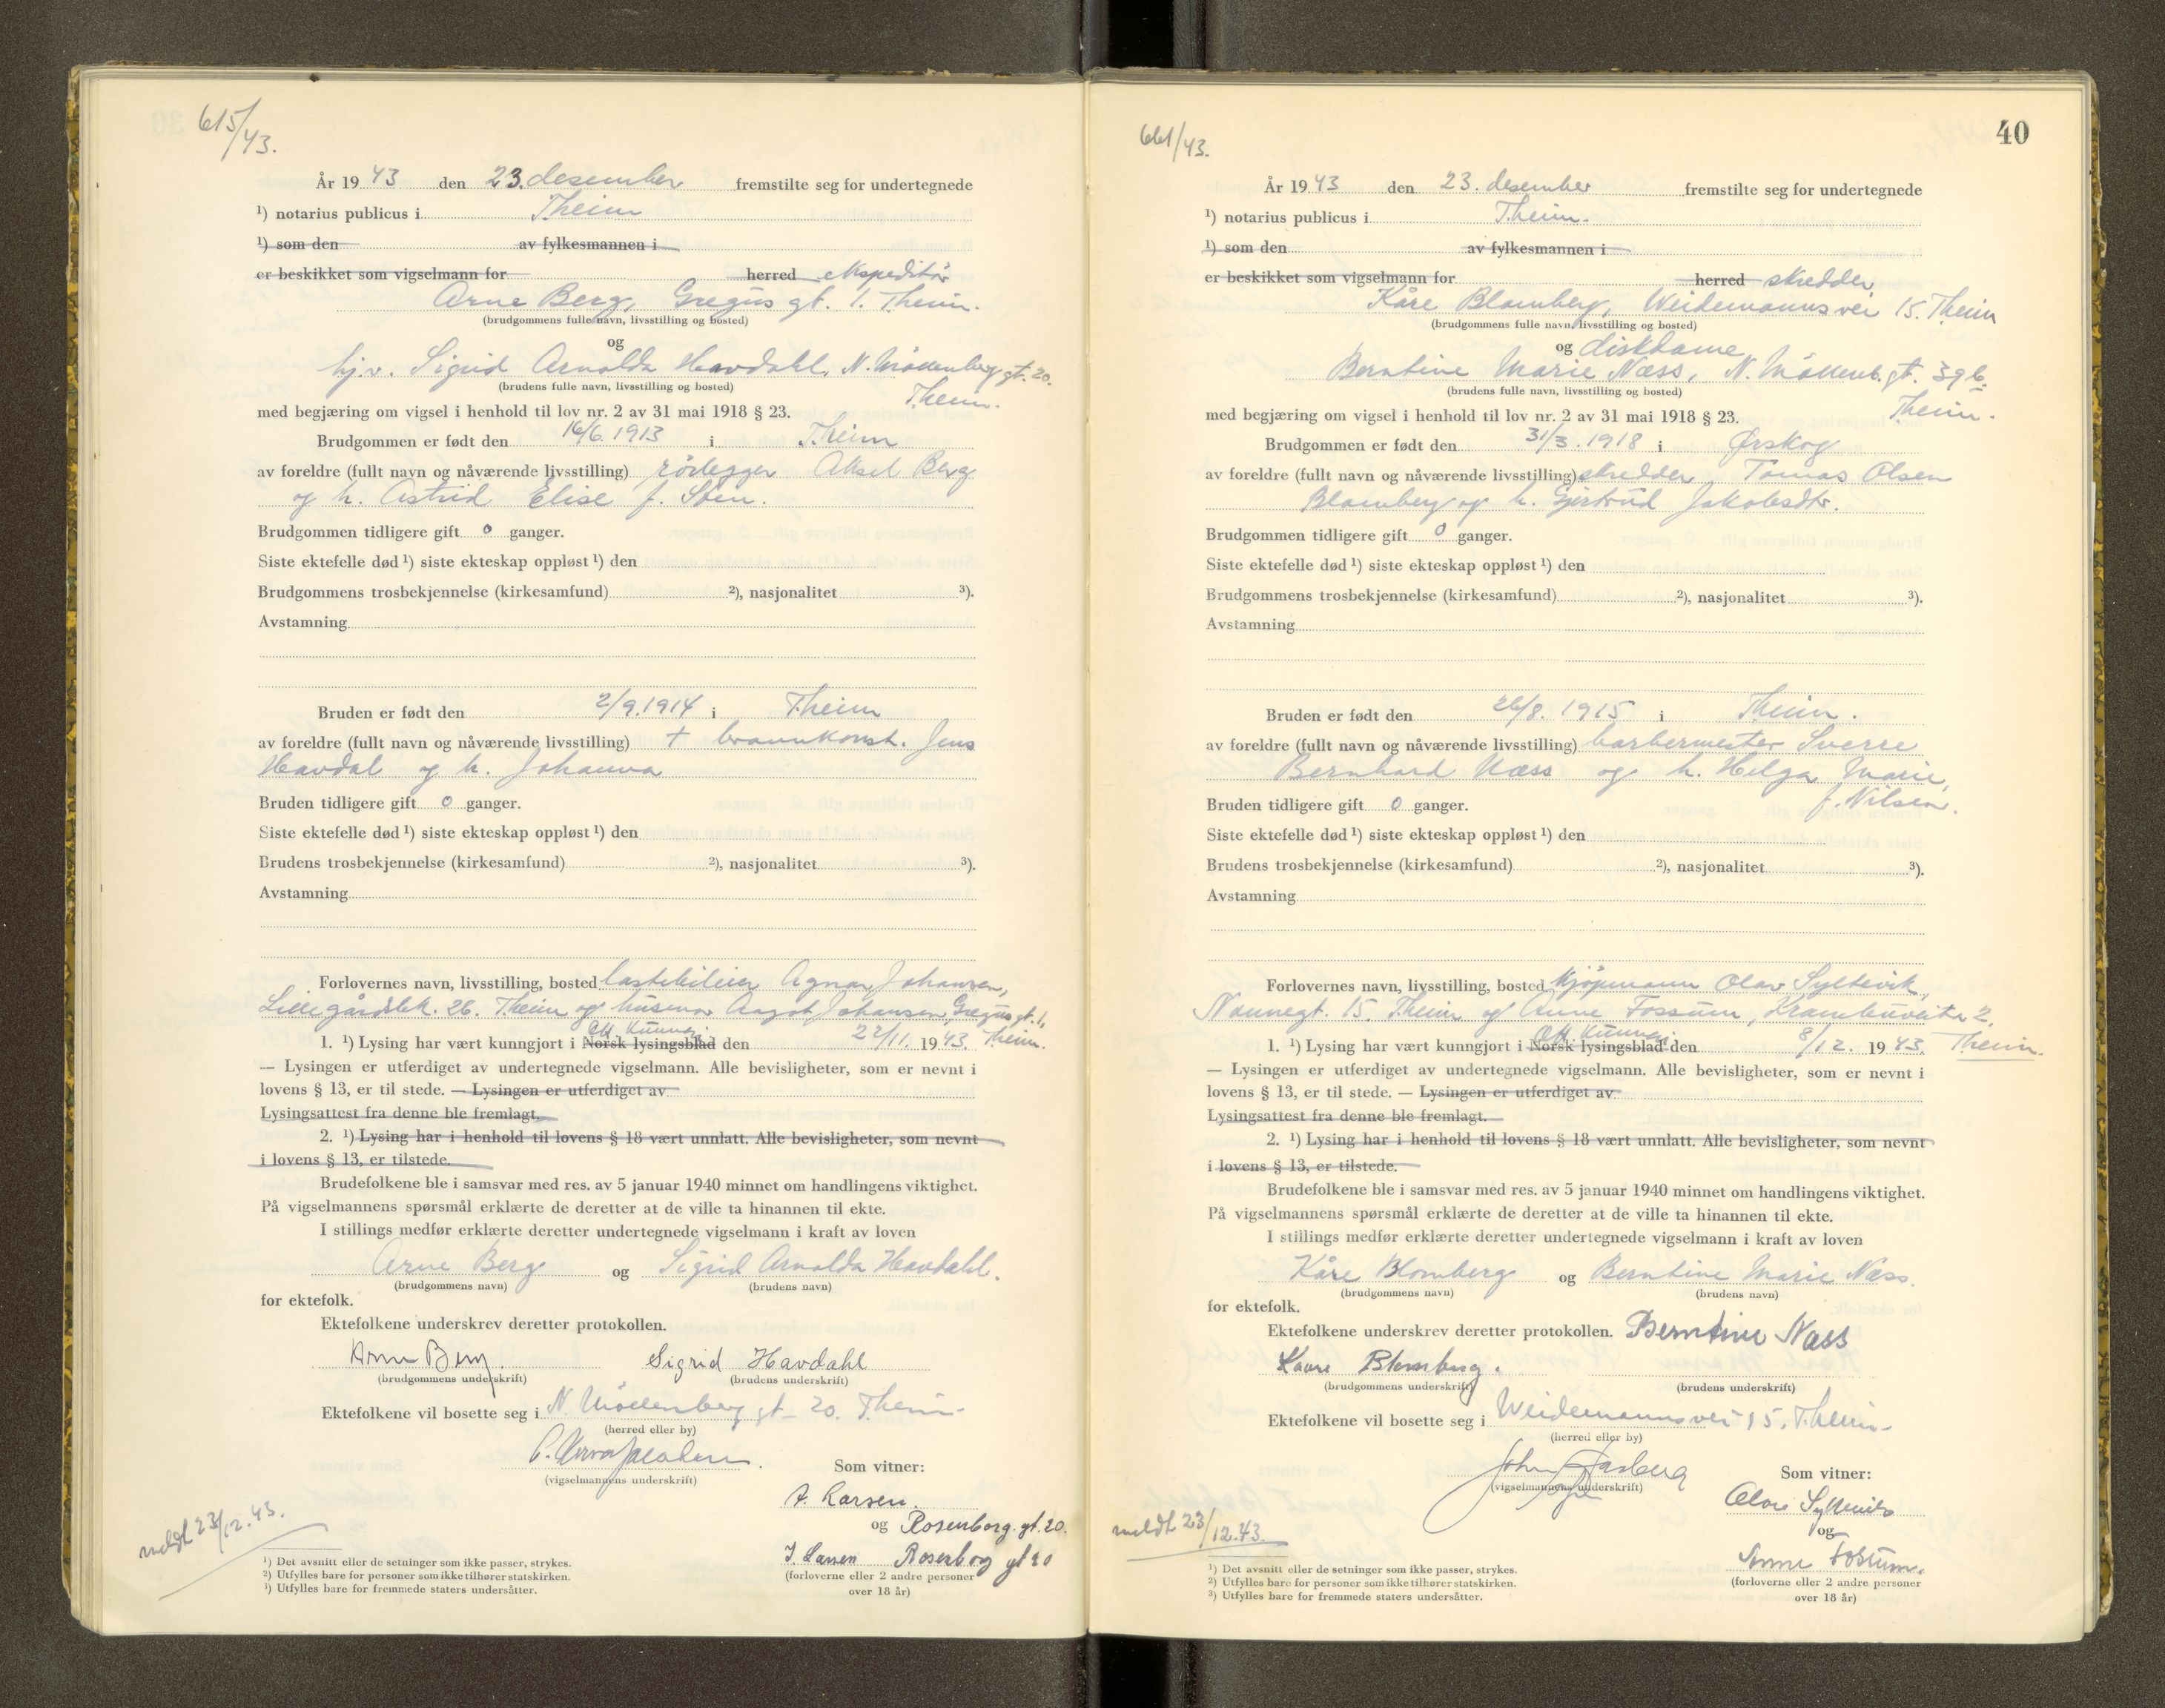 615/43.
År 19 43 den 23. desember fremstilte seg for undertegnede
¹) notarius publicus i T.heim
¹) som den av fylkesmannen i
er beskikket som vigselmann for herred ekspeditør
Arne Berg, Gregus gt. 1. T.heim.
(brudgommens fulle navn, livsstilling og bosted)
og
hj.v. Sigrid Arnolda Havdahl, N. Möllenberg gt. 20.
T.heim.
(brudens fulle navn, livsstilling og bosted)
med begjæring om vigsel i henhold til lov nr. 2 av 31 mai 1918 § 23.
Brudgommen er født den 16/6. 1913 i T.heim
av foreldre (fullt navn og nåværende livsstilling) rörlegger Aksel Berg
og h. Astrid Elise f. Sten.
Brudgommen tidligere gift 0 ganger.
Siste ektefelle død ¹) siste ekteskap oppløst ¹) den
Brudgommens trosbekjennelse (kirkesamfund) ²), nasjonalitet ³).
Avstamning
Bruden er født den 2/9. 1914 i T.heim
av foreldre (fullt navn og nåværende livsstilling) + brannkonst. Jens
Havdal og h. Johanna
Bruden tidligere gift 0 ganger.
Siste ektefelle død ¹) siste ekteskap oppløst ¹) den
Brudens trosbekjennelse (kirkesamfund) ²), nasjonalitet ³).
Avstamning
Forlovernes navn, livsstilling, bosted lastebileier Agnar Johansen,
Lillegårdsbk. 26. T.heim og husmor Aagot Johansen, Gregus gt. 1,
T.heim.
Off. Kunngj.
1. ¹) Lysing har vært kunngjort i Norsk lysingsblad den 22/11. 19 43.
— Lysingen er utferdiget av undertegnede vigselmann. Alle bevisligheter, som er nevnt i
lovens § 13, er til stede. — Lysingen er utferdiget av
Lysingsattest fra denne ble fremlagt.
2. ¹) Lysing har i henhold til lovens § 18 vært unnlatt. Alle bevisligheter, som nevnt
i lovens § 13, er tilstede.
Brudefolkene ble i samsvar med res. av 5 januar 1940 minnet om handlingens viktighet.
På vigselmannens spørsmål erklærte de deretter at de ville ta hinannen til ekte.
I stillings medfør erklærte deretter undertegnede vigselmann i kraft av loven
Arne Berg og Sigrid Arnolda Havdahl.
(brudgommens navn) (brudens navn)
for ektefolk.
Ektefolkene underskrev deretter protokollen.
Arne Berg. Sigrid Havdahl
(brudgommens underskrift) (brudens underskrift)
Ektefolkene vil bosette seg i N. Möllenberg gt. 20. T.heim.
(herred eller by)
(vigselmannens underskrift)
Som vitner:
A. Larsen.
og Rosenborg. gt. 20.
J. Larsen Rosenborg gt 20
(forloverne eller 2 andre personer
over 18 år)
meldt 23/12. 43.
¹) Det avsnitt eller de setninger som ikke passer, strykes.
²) Utfylles bare for personer som ikke tilhører statskirken.
³) Utfylles bare for fremmede staters undersåtter.
40
661/43.
År 19 43 den 23. desember fremstilte seg for undertegnede
¹) notarius publicus i T.heim.
¹) som den av fylkesmannen i
er beskikket som vigselmann for herred skredder
Kåre Blomberg, Weidemannsvei 15. T.heim
(brudgommens fulle navn, livsstilling og bosted)
og diskdame
Berntine Marie Næss, N. Möllenb. gt. 39 b.
T.heim.
(brudens fulle navn, livsstilling og bosted)
med begjæring om vigsel i henhold til lov nr. 2 av 31 mai 1918 § 23.
Brudgommen er født den 31/3. 1918 i Ørskog
av foreldre (fullt navn og nåværende livsstilling) skredder Tomas Olsen
Blomberg og h. Gjertrud Jakobsdtr.
Brudgommen tidligere gift 0 ganger.
Siste ektefelle død ¹) siste ekteskap oppløst ¹) den
Brudgommens trosbekjennelse (kirkesamfund) ²), nasjonalitet ³).
Avstamning
Bruden er født den 26/8. 1915 i T.heim.
av foreldre (fullt navn og nåværende livsstilling) barbermester Sverre
Bernhard Næss og h. Helga Marie,
f. Nilsen.
Bruden tidligere gift 0 ganger.
Siste ektefelle død ¹) siste ekteskap oppløst ¹) den
Brudens trosbekjennelse (kirkesamfund) ²), nasjonalitet ³).
Avstamning
Forlovernes navn, livsstilling, bosted kjöpmann Olav Syltevik,
Nannegt. 15. T.heim og Anne Fossum, Krambuveita 2.
T.heim.
Off. Kunngj.
1. ¹) Lysing har vært kunngjort i Norsk lysingsblad den 8/12. 19 43.
— Lysingen er utferdiget av undertegnede vigselmann. Alle bevisligheter, som er nevnt i
lovens § 13, er til stede. — Lysingen er utferdiget av
Lysingsattest fra denne ble fremlagt.
2. ¹) Lysing har i henhold til lovens § 18 vært unnlatt. Alle bevisligheter, som nevnt
i lovens § 13, er tilstede.
Brudefolkene ble i samsvar med res. av 5 januar 1940 minnet om handlingens viktighet.
På vigselmannens spørsmål erklærte de deretter at de ville ta hinannen til ekte.
I stillings medfør erklærte deretter undertegnede vigselmann i kraft av loven
Kåre Blomberg og Berntine Marie Næss.
(brudgommens navn) (brudens navn)
for ektefolk.
Ektefolkene underskrev deretter protokollen. Berntine Næss
Kaare Blomberg.
(brudgommens underskrift) (brudens underskrift)
Ektefolkene vil bosette seg i Weidemannsvei 15, T.heim.
(herred eller by)
John
(vigselmannens underskrift)
Som vitner:
Olav Syltevik
og
Anne Fossum.
(forloverne eller 2 andre personer
over 18 år)
meldt 23/12.43.
¹) Det avsnitt eller de setninger som ikke passer, strykes.
²) Utfylles bare for personer som ikke tilhører statskirken.
³) Utfylles bare for fremmede staters undersåtter.